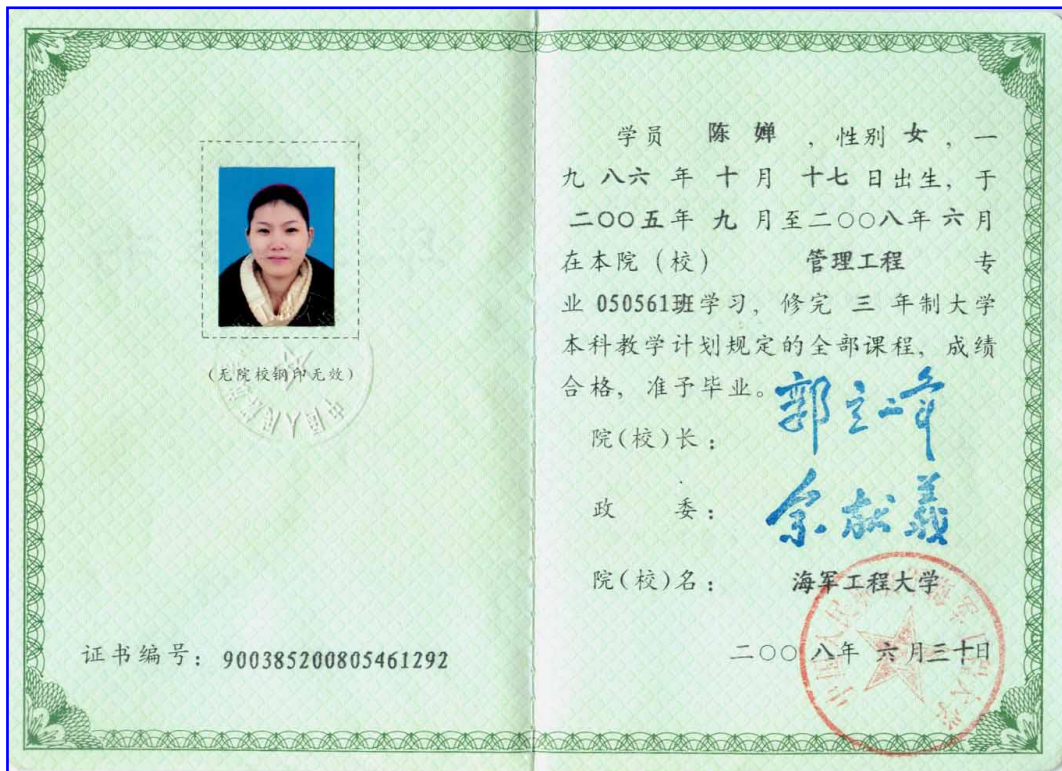 (无院校钢印无效)
证书编号: 900385200805461292
学员 陈婵 , 性别 女 , 一
九八六年十月 十七日出生, 于
二〇〇五年 九 月至二〇〇八年 六月
在本院(校) 管理工程 专
业 050561班学习, 修完 三 年制大学
本科教学计划规定的全部课程, 成绩
合格, 准予毕业。
院(校)长:
政 委:
院(校)名: 海军工程大学
二〇〇八年 六月三十日